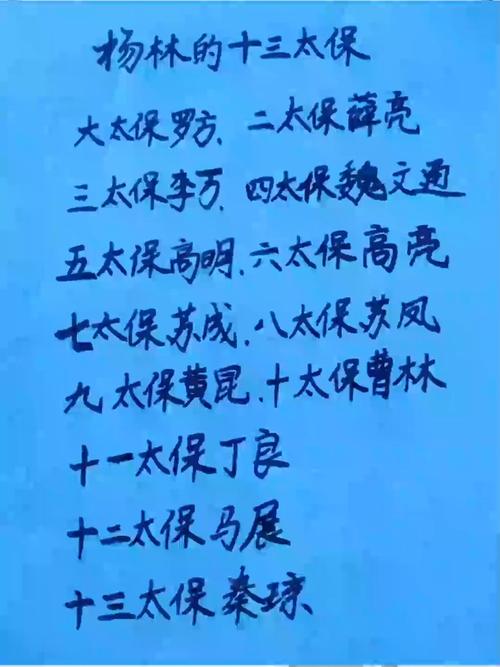 杨林的十三太保
大太保罗方、二太保薛亮
三太保李万、四太保魏文通
五太保高明、六太保高亮
七太保苏成、八太保苏凤
九太保黄昆、十太保曹林
十一太保丁良
十二太保马展
十三太保秦琼